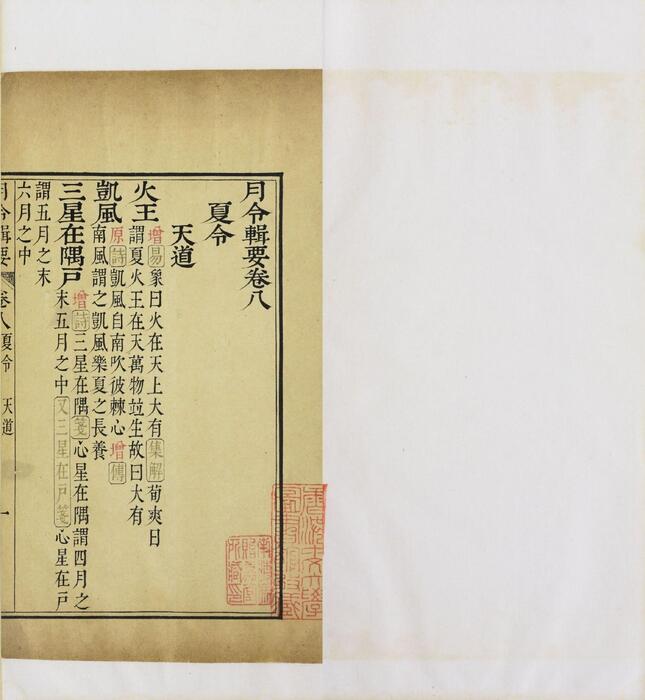 月令輯要卷八
夏令
天道
火王
增易象曰火在天上大有集解荀爽曰
謂夏火王在天萬物竝生故曰大有
凱風
原詩凱風自南吹彼棘心增傳
南風謂之凱風樂夏之長養
三星在隅戸
增詩三星在隅箋心星在隅謂四月之
末五月之中又三星在戸箋心星在戸
謂五月之末
六月之中
月令輯要
卷八夏令
天道
一